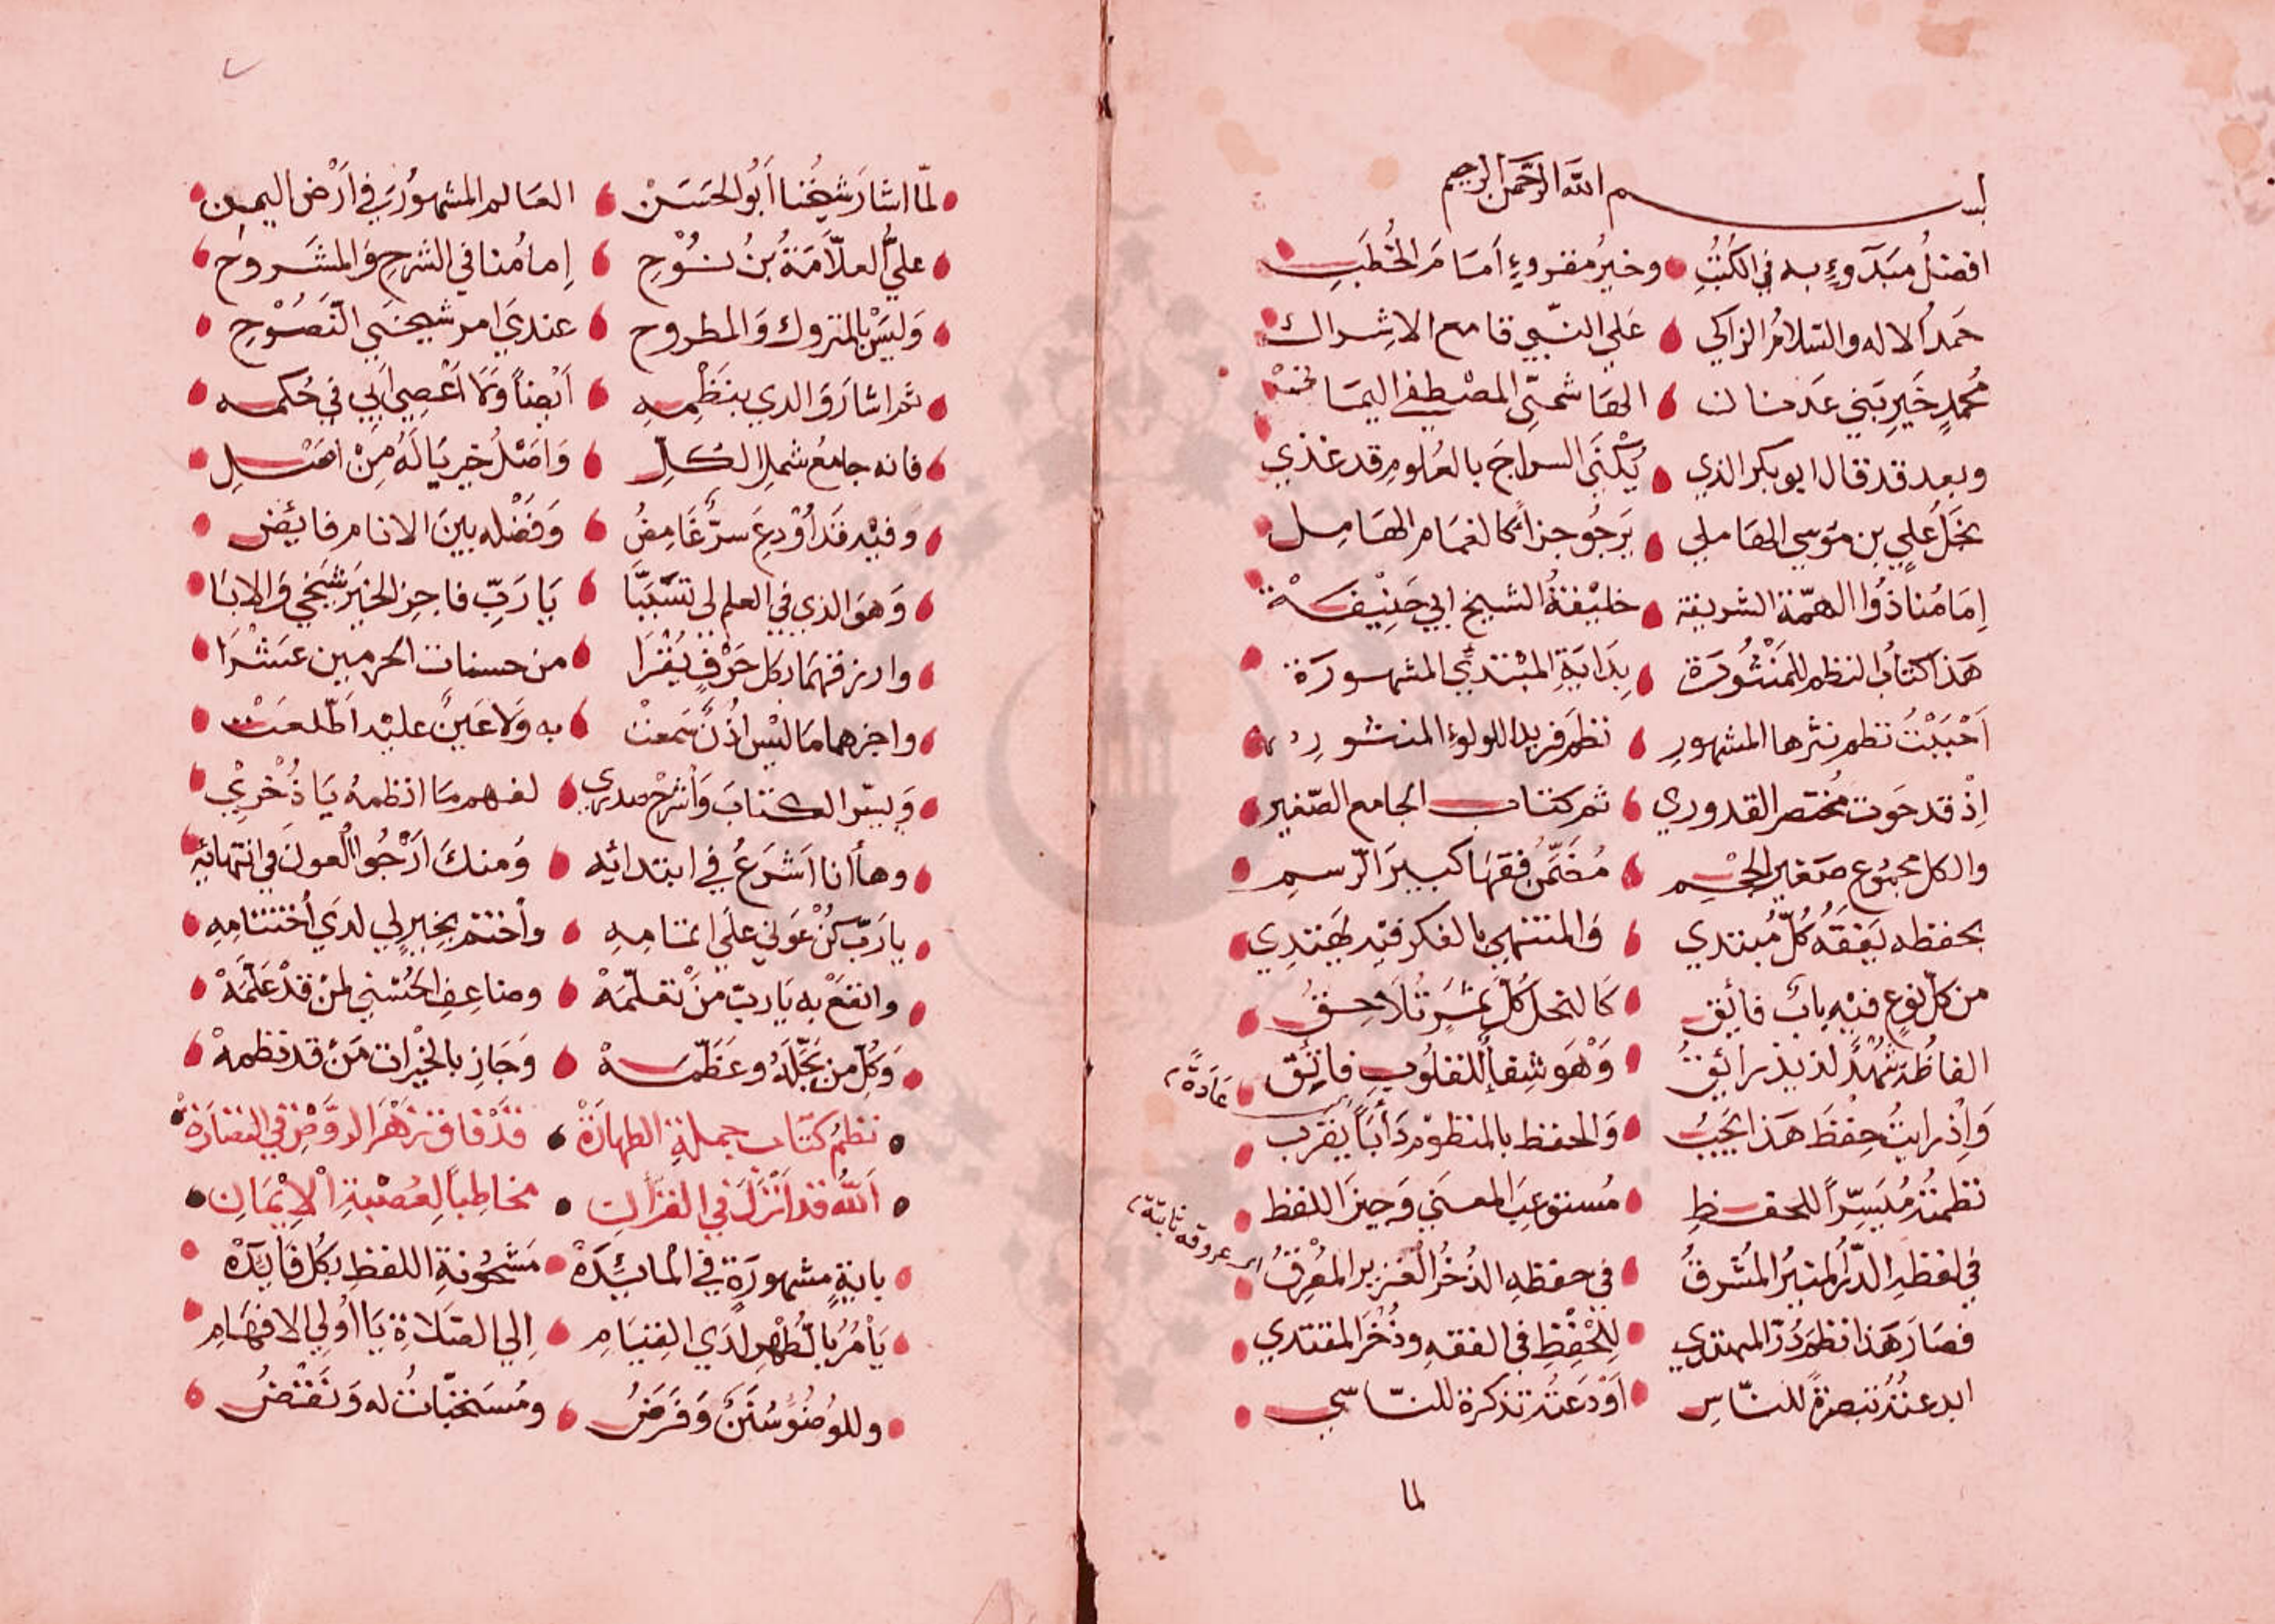 بســـــم الله الرحمن الرحيم
افضلُ مبدَوءٍ به في الكُتُبِ وخيرُ مقروءٍ اَمَامَ الخُطَبِ
حَمدُ الاله والسّلامُ الزاكي عَلي النّبي قامع الاشِراك
مُحمدٍ خَيرِ بَني عَدنان الهَاشميّ المصْطفي اليمَاني
وبعد قد قال ابو بكر الذي يُكْنَي السراجَ بالعُلومِ قد غذي
نجَلُ عَلي بن موَسي الهَاملي يَرجُو جزاً كالغمَام الهَامِل
اِمَامُنا ذوُا الهمّة الشريفة خليْفةُ الشيخ ابي حَنِيْفَةْ
هَذا كتابُ النظم للمَنْثُورَة بِدَايَةِ المبْتديِ المشهورَة
اَحْبَبْتُ نظم نثرها المشهورِ نظمَ فريد اللولوءِ المنشورِ
اِذْ قد حَوت مُختصر القدوري ثم كتاب الجامع الصّغير
والكل مجموُع صَغير الحجْمِ مُضَمَّنٌ فقهَا كبيرَ الرّسمِ
بحفظه يَفقَهُ كُلُّ مُبتدي وَالمنتهي بالفكر فيْه يَهتدِي
من كلّ نوعٍ فيْه بابٌ فائق كَالنحل كُلَّ ثمَرٍ تُلَاحِقُ
الفاظُهُ شُهْدٌ لذيذ رائقُ وَهْوَ شِفاً للقلوُبِ فائق
عَادةً
وَاِذ رايتُ حِفظَ هَذا يَجبُ وَالحفظ بالمنظوم دَأباً يقرب
نظمتُه مُيَسِّراً للحفظِ مُستوعِبَ المعنَي وَجيزَ اللفظ
اي عروقه ثابتة
في لفظهِ الدّرُ المنيرُ المُشرقُ في حفظهِ الذُخْرُ العَزيز المُعْرِقُ
فصَارَ هَذا نظمَ دُرّ المهتدي لِلحْفِظِ في الفقهِ وذُخْرَ المقتدي
ابدعتُهُ تبصرةً للنّاسِ اَوْدَعتُهُ تذكرة للنّاسي
لما
لمّا اشارَ شيخُنا اَبُو الحَسَنْ العَالم المشهوُرَ في اَرْض اليمن
عليُّ العلاّمَةُ بنُ نوُحِ اِمامُنا في الشرحِ وَالمشروح
وَليسَ بالمتروك وَالمطروح عندي امر شيخيَ النّصَوُحِ
ثم اشارَ والدي بنَظْمِهِ اَيْضاً وَلَا اَعْصِي اَبي في حُكمه
فانه جامعُ شملِ الكُلّ وَاصْلُ خيرٍ يَا لَهُ مِنْ اصْلِ
وَفيْه قَد اُوْدِعَ سرٌّ غَامِضُ وَفَضْله بينَ الانام فائض
وَهوَ الذي في العلم لي تسَبَّبَا يَا رَبِّ فاجزِ الخيرَ شَيخي وَالابَا
وارزقهمَا بكل حَرْفٍ يُقْرَا من حسنات الحرمين عَشْرَا
واجزهما مَا ليْس اذُنٌ سَمعتْ به وَلَا عَينٌ عليْه اَطّلعَتْ
وَيسّر الكتابَ وَاشْرحْ صدري لفهم مَا انظمهُ يَا ذُخْرِيْ
وها أنا اَشرَعُ في ابتدائه وَمنكَ اَرْجُو العونَ في انتهائهِ
يا رَبّ كُنْ عَوني علَي اتمامِهِ وأختم بِخيرٍ لي لدَي اُختتامِهِ
وانفَعْ به يَا ربّ مَنْ تعلّمَهْ وضاعِفِ الحُسْني لمنْ قدْ عَلَّمَهْ
وَكُلّ من بَجَّلَهُ وعَظّمَهْ وَجَازِ بالخيْرات مَنْ قد نظمهْ
نظمُ كتَاب جملة الطهارَةْ قَدْ فاق زَهْرَ الروَّضِ في النضارَةْ
اَللهُ قد اَنزَلَ في القرَان مخاطِباً لِعُصْبَةِ الْاِيْمَانِ
بايةٍ مشهورَةٍ في الْمائِدَةْ مَشحُونةِ اللفظِ بكُل فَايدَةْ
يَاْمُرُ بالُّطهْرِ لدَي القِيَامِ اِلي الصَلَاة يَا اُولي الافهَامِ
وللوُضوُ سُنَنٌ وَفَرَضُ ومُسَتحَبّاتٌ له وَنَقْضُ